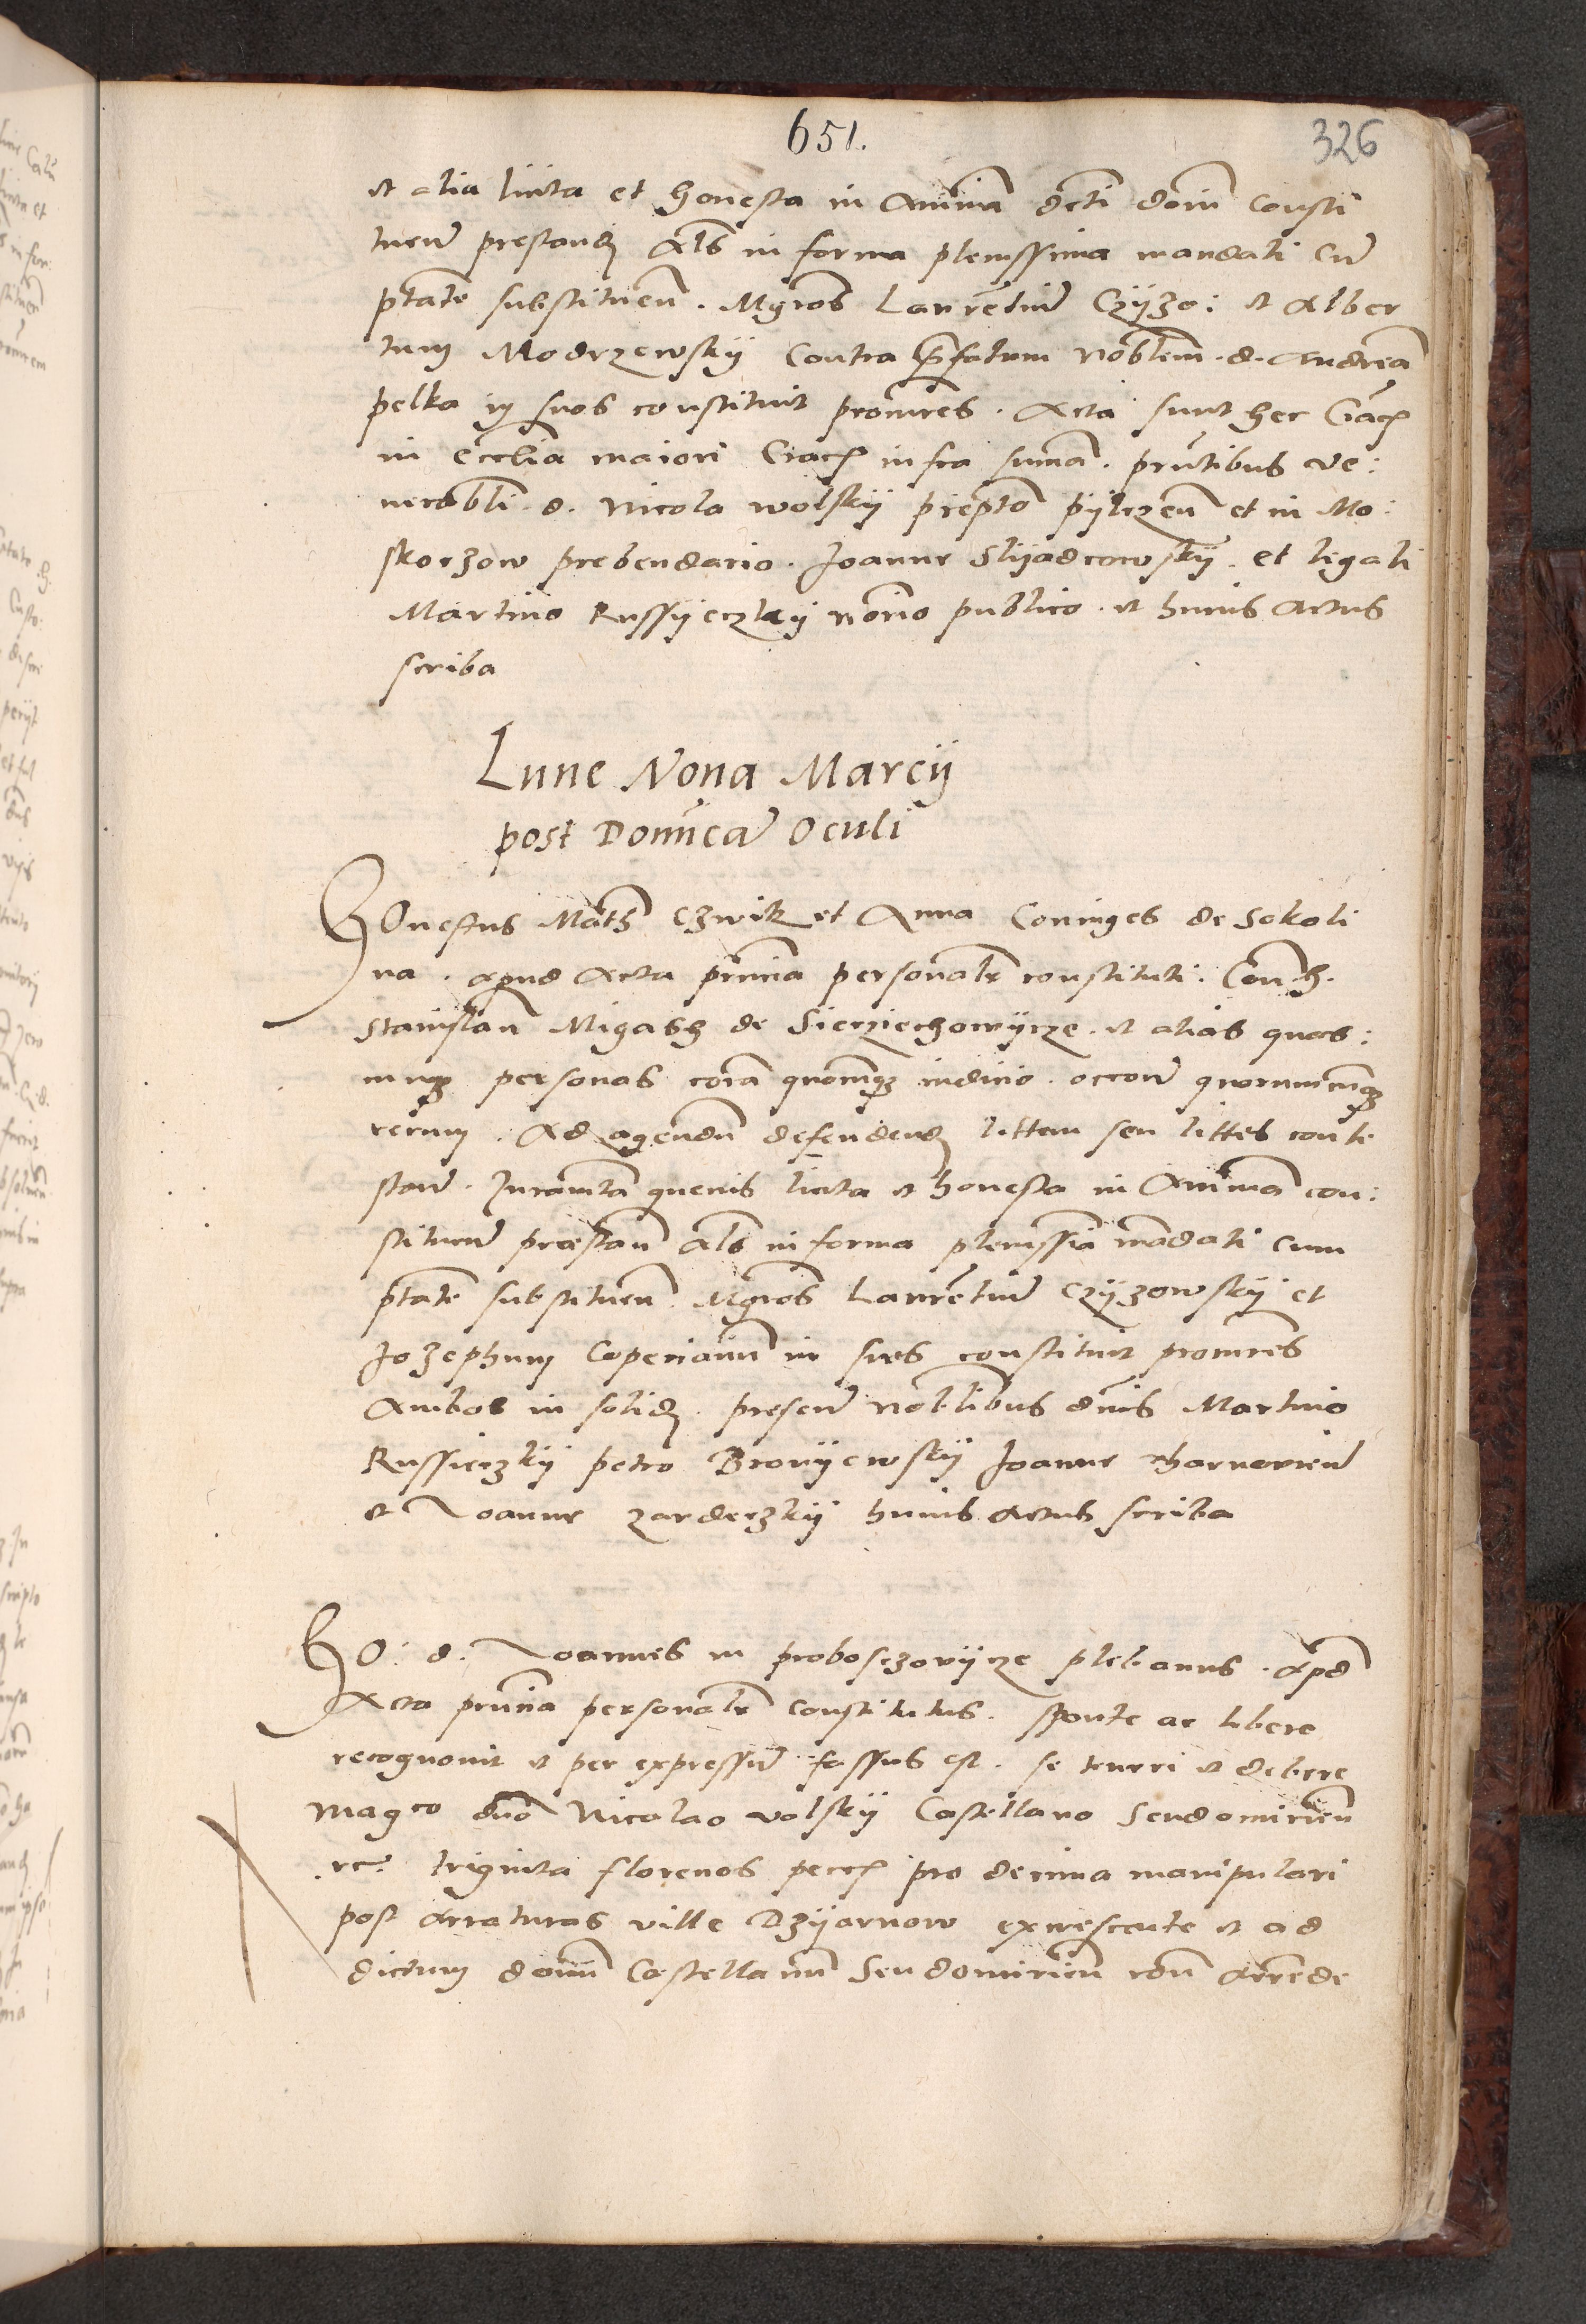 651.
326
et alia licita et honesta in Animã dcti domi Consti
tuen̄ prestand Als in forma plenissima mandati Cũ
ptate substituen̄. Mgros Laurẽtiũ Czyżo: et Alber
tum Modrzewskÿ Contra p̄fatum Noblem. d. Andreã
pelka in suos constituit procures. Acta sunt hec Crac
in eccli̅a maiori Crac infra sum̄ã. pñtibus ve:
nerabli. d. Nicola wolskÿ prepto pÿlczeñ et in Mo:
skorzow prebendario. Joanne Slÿadrowskÿ. et legali
Martino Russÿeczkÿ notrio publico. et huius Actus
scriba
Lune Nona Marcÿ
post Domĩcã Oculi
HOnestus Maths Czwik et Anna Coniuges de Sokoli
na. apud Acta prñcia personalr constituti: Con. h.
Stanislaũ Migasch de Sierziechowÿcze. et alias quas:
cunqz personas corã quocunqz iudicio. occoẽ quorumcũqz
rerum. Ad agendũ defendend littem seu littes conte
stañ. Juramta quevis licita et honesta in Animã con:
stituen̄ præstan̄ als in forma plenissiã mãdati cum
ptate substituen̄. Mgros Laurẽtiũ Czyżowskÿ et
Jozephum Coperianũ in suos constituit procures
Ambos in solid. presen̄ Noblibus dñis Martino
Russieczkÿ petro Bronÿewskÿ Joanne tharnovien̄
et Joanne zardeczkÿ huius Actus scriba
HO. d. Joannes in proboszczowÿcze plebanus. Apd
Acta prñcia personalr Constitutus. sponte ac libere
recognovit et per expressũ fassus est. se teneri et debere
Magco dño Nicolao volskÿ Castellano Sendomirieñ
rc. triginta florenos pecc pro decima manipulari
post Araturas ville Dzÿarnow excrescente et ad
dictum domũ Castellanũ Sendomirieñ roñ Arrẽde